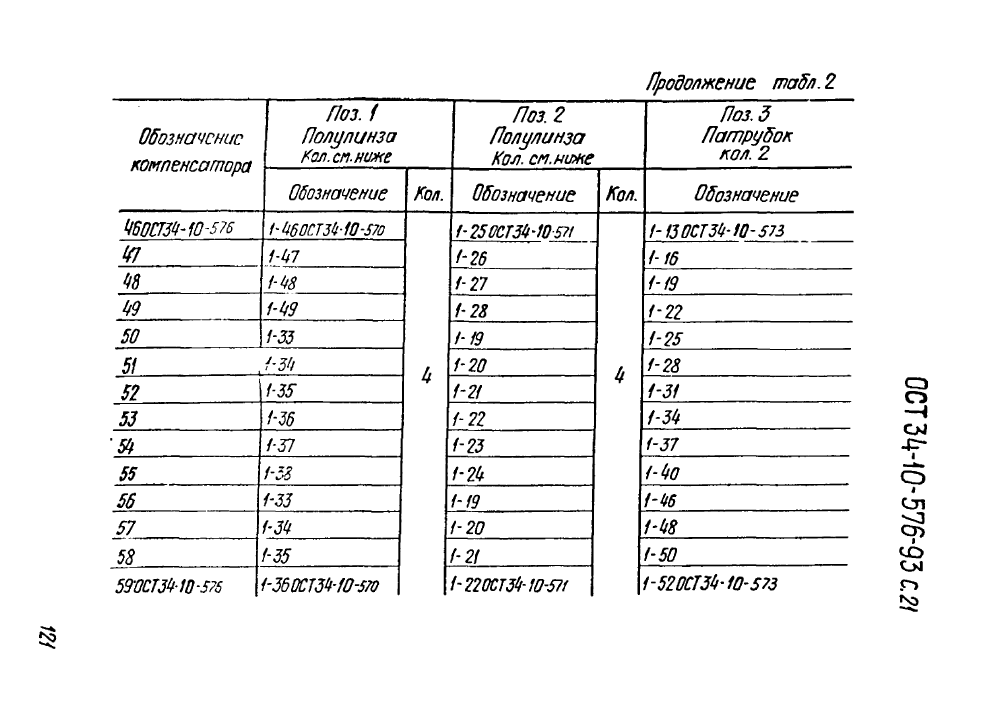 Продолжение табл. 2
Обозначение компенсатора | Поз. 1 Полулинза Кол. см. ниже | Поз. 2 Полулинза Кол. см. ниже | Поз. 3 Патрубок кол. 2
Обозначение | Кол. | Обозначение | Кол. | Обозначение
46 ОСТ 34-10-576 | 1-46 ОСТ 34-10-570 | 1-25 ОСТ 34-10-571 | 1-13 ОСТ 34-10-573
47 | 1-47 | 1-26 | 1-16
48 | 1-48 | 1-27 | 1-19
49 | 1-49 | 1-28 | 1-22
50 | 1-33 | 1-19 | 1-25
51 | 1-34 | 4 | 1-20 | 4 | 1-28
52 | 1-35 | 1-21 | 1-31
53 | 1-36 | 1-22 | 1-34
54 | 1-37 | 1-23 | 1-37
55 | 1-38 | 1-24 | 1-40
56 | 1-33 | 1-19 | 1-46
57 | 1-34 | 1-20 | 1-48
58 | 1-35 | 1-21 | 1-50
59 ОСТ 34-10-576 | 1-36 ОСТ 34-10-570 | 1-22 ОСТ 34-10-571 | 1-52 ОСТ 34-10-573
ОСТ 34-10-576-93 с. 21
121